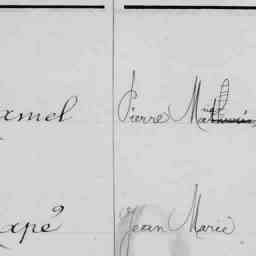 amel Pierre Mathurin
apé Jean Marie